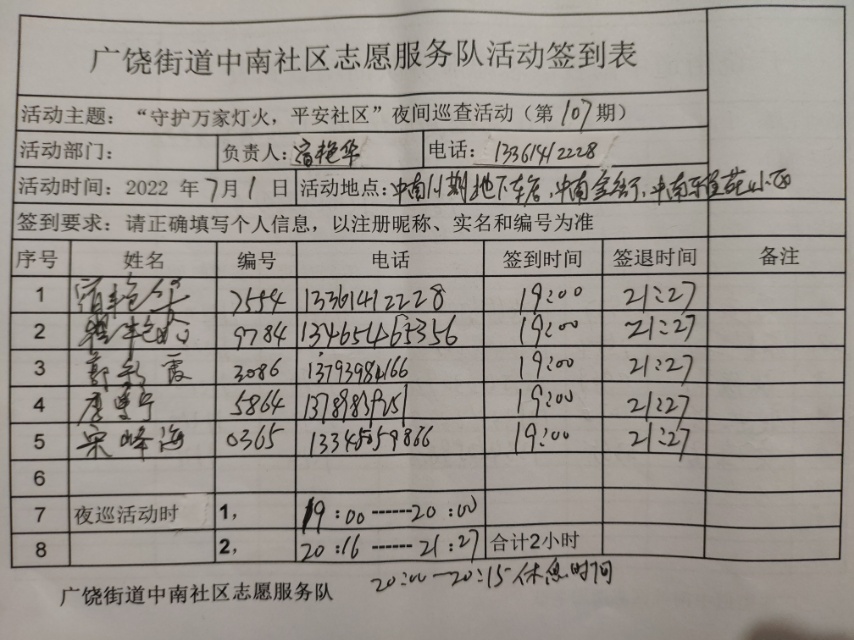 广饶街道中南社区志愿服务队活动签到表
活动主题：“守护万家灯火，平安社区”夜间巡查活动（第107期）
活动部门： 负责人：宿艳华 电话：13361412228
活动时间：2022 年7月1日 活动地点：中南 地下车 、中南 、中南 小区
签到要求：请正确填写个人信息，以注册昵称、实名和编号为准
序号 姓名 编号 电话 签到时间 签退时间 备注
1 宿艳华 7554 13361412228 19:00 21:27
2 9784 13465465356 19:00 21:27
3 霞 3086 13793984166 19:00 21:27
4 5864 19:00 21:27
5 宋峰海 0365 19:00 21:27
6
7 夜巡活动时 1， 19:00------20:00
8 2， 20:16------21:27 合计2小时
广饶街道中南社区志愿服务队 20:00—20:15休息时间